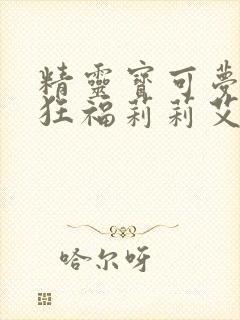 精靈寶可夢
狂福莉莉艾
哈尔呀